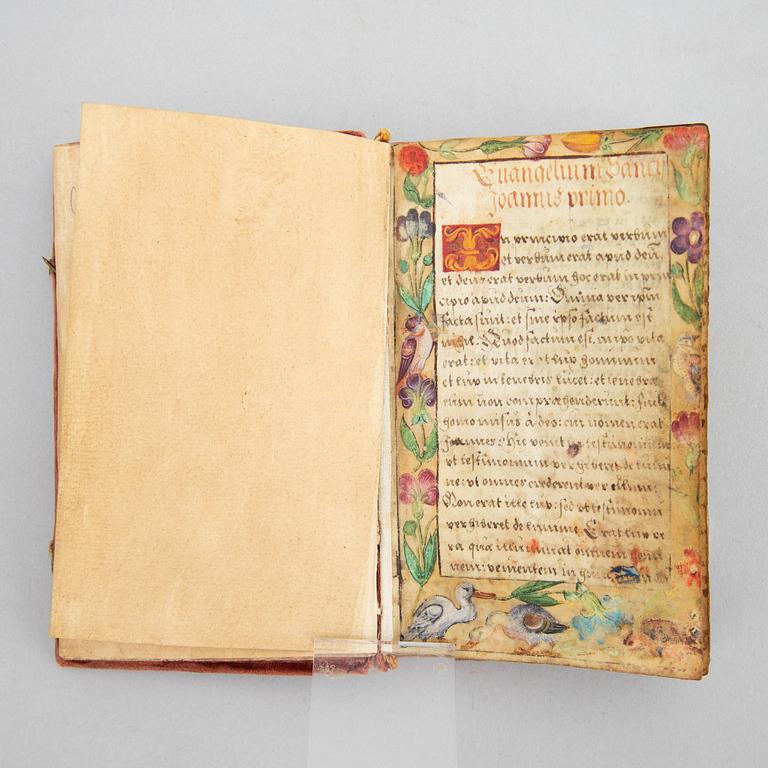 Euangelium Sancti
Joannis primo.
In principio erat verbum
et verbum erat apud deū
et deus erat verbum hoc erat in prin
cipio apud deum: Omnia per ipm̄
facta sunt: et sine ipso factum est
nihil: Quod factum est in ipō vita
erat: et vita erat lux hominum
et lux in tenebris lucet: et tenebræ
eam non compræhenderunt: fuit
homo missus à deo: cui nomen erat
Joannes: Hic venit in testimonium
vt testimonium perhiberet de lumi
ne: vt omnes crederent per illum:
Non erat ille lux: sed vt testimoniū
perhiberet de lumine Erat lux ve
ra quæ illuminat omnem homi
nem: venientem in hunc